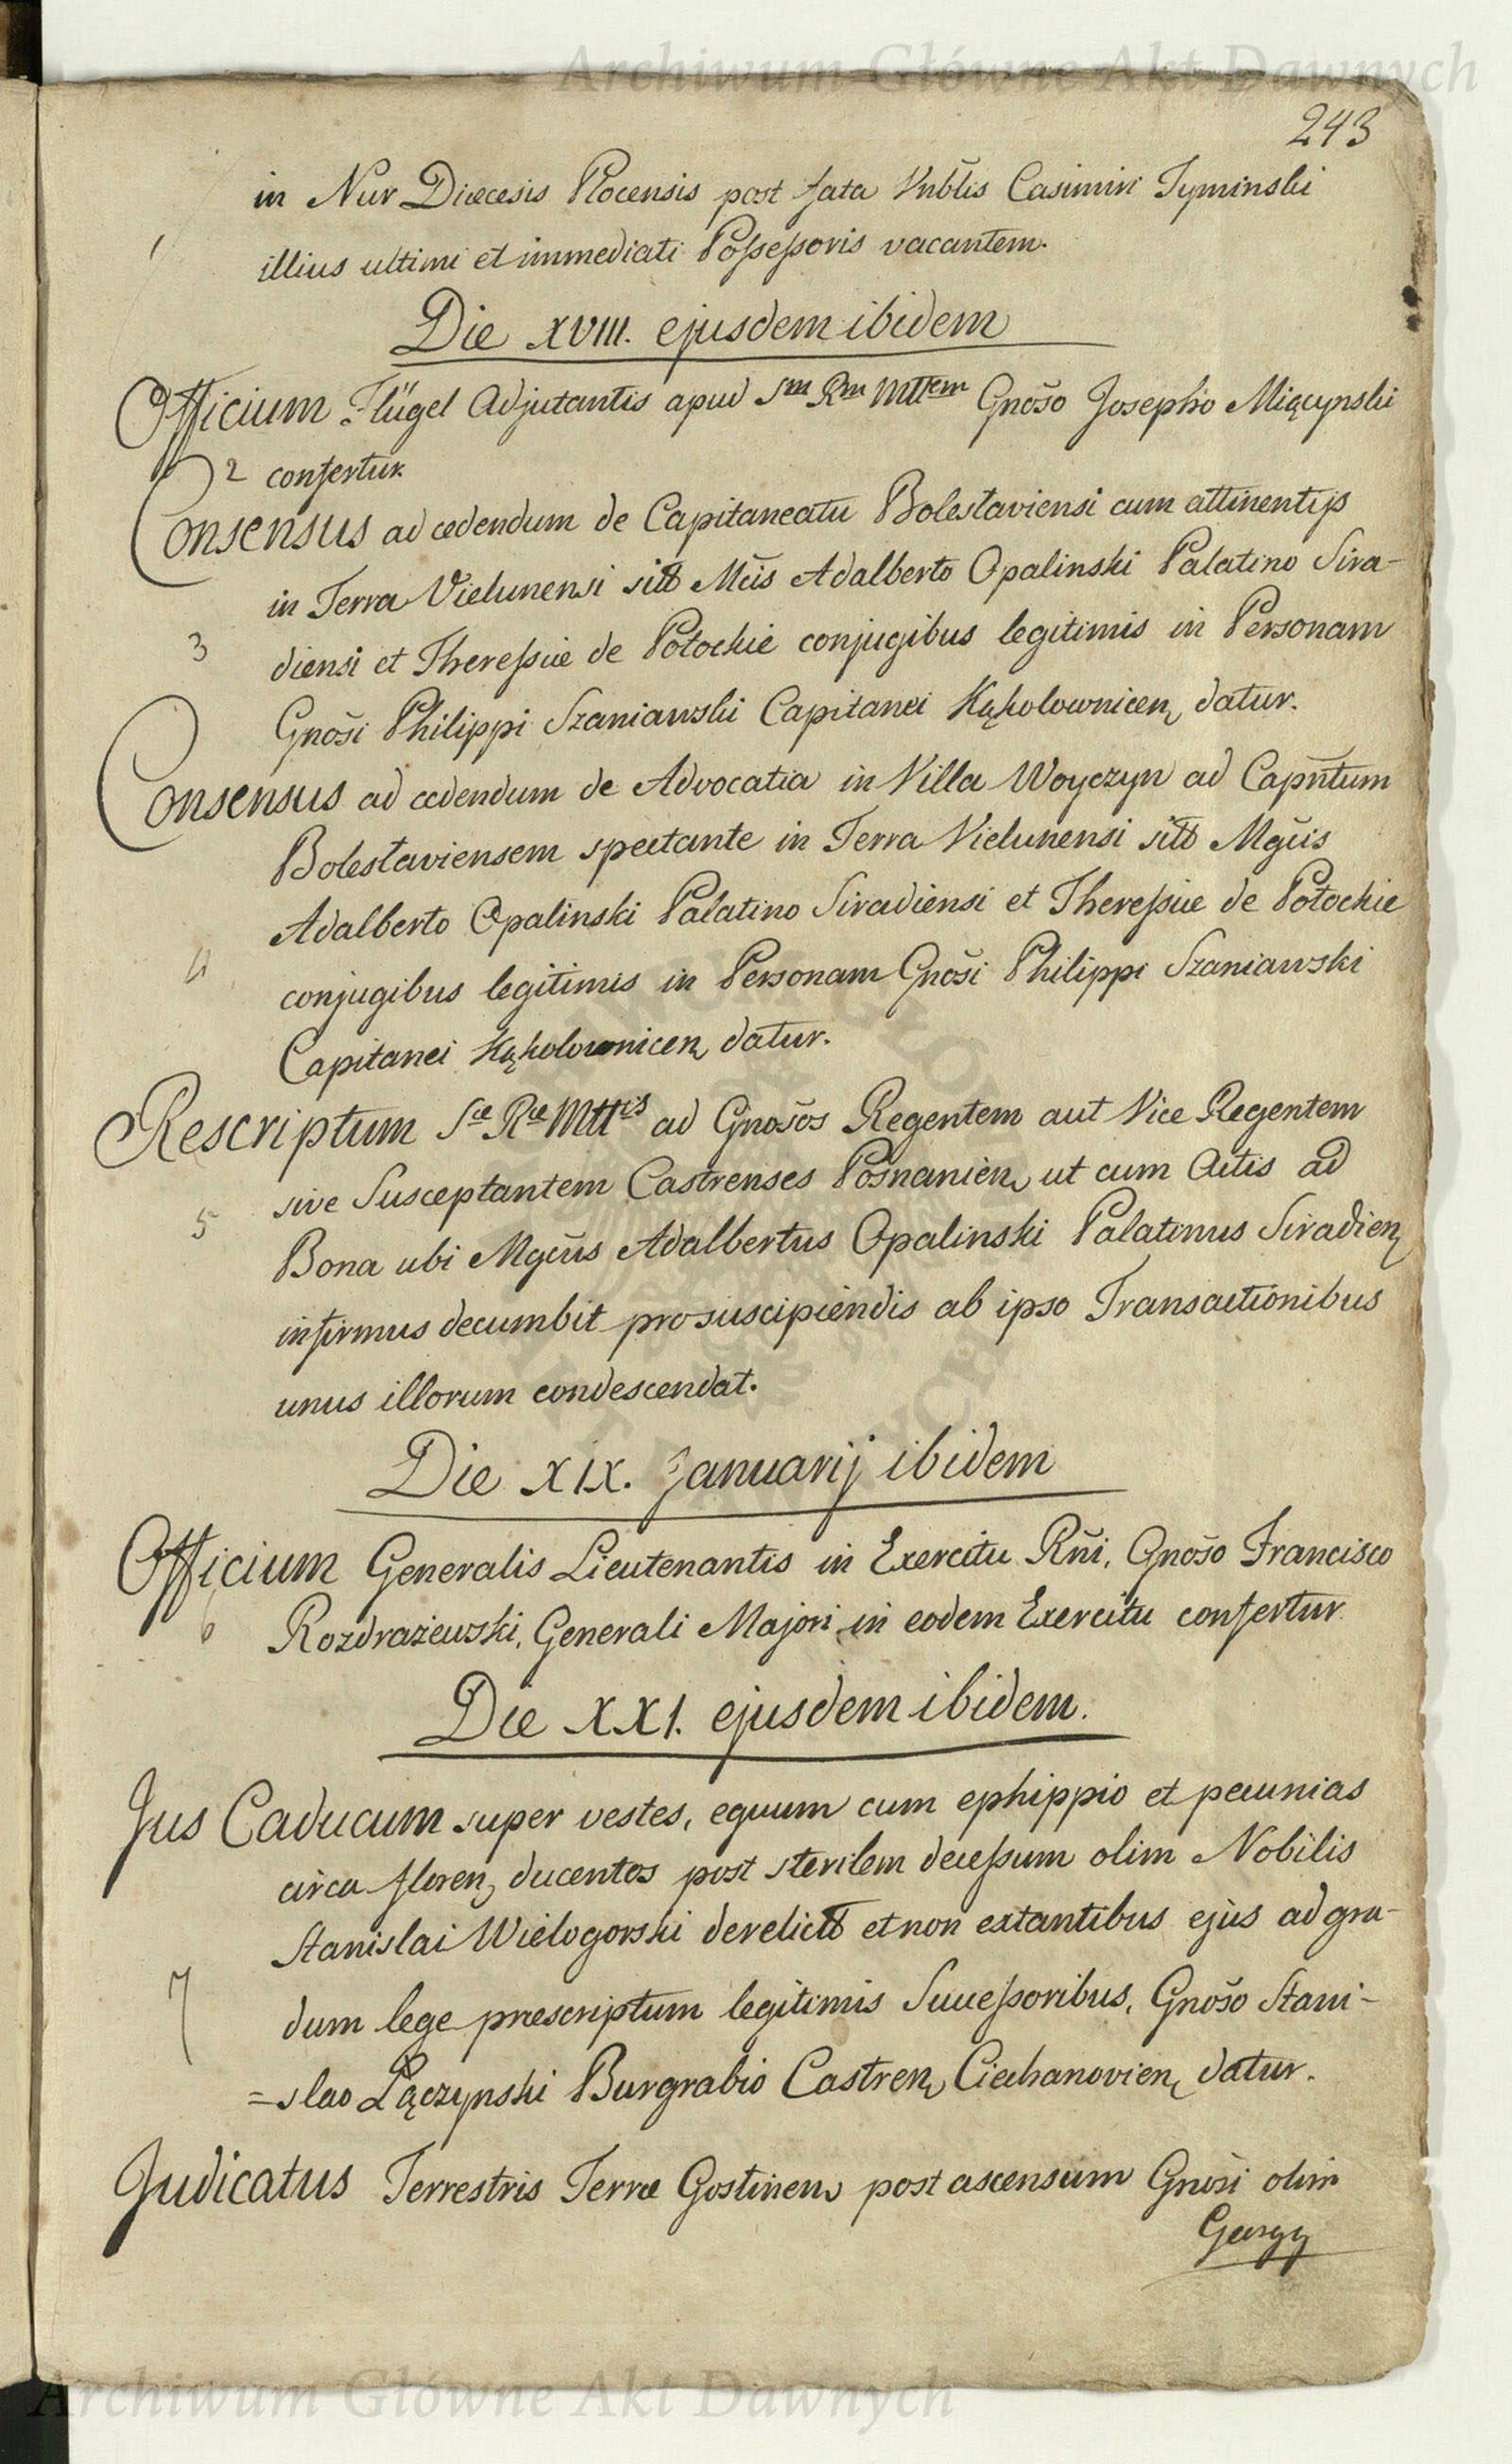 Archiwum Główne Akt Dawnych
243
in Nur Diæcesis Plocensis post fata Vnblis Casimiri Tyminski
1 illius ultimi et immediati Possessoris vacantem.
Die XVIII. ejusdem ibidem
Officium Flügel Adjutantis apud Sm Rm Mttem Gnoso Josepho Miącynski
2 confertur
Consensus ad cedendum de Capitaneatu Boleslaviensi cum attinentijs
in Terra Vielunensi sitt Mcis Adalberto Opalinski Palatino Sira-
3 diensi et Theressiæ de Potockie conjugibus legitimis in Personam
Gnosi Philippi Szaniawski Capitanei Kąkolownicen datur.
Consensus ad cedendum de Advocatia in Villa Woyczyn ad Capntum
Boleslaviensem spectante in Terra Vielunensi sitt Mgcis
Adalberto Opalinski Palatino Siradiensi et Theressiæ de Potockie
4 conjugibus legitimis in Personam Gnosi Philippi Szaniawski
Capitanei Kąkolownicen datur.
Rescriptum Sæ Ræ Mttis ad Gnosos Regentem aut Vice Regentem
5 sive Susceptantem Castrenses Posnanien, ut cum Actis ad
Bona ubi Mgcus Adalbertus Opalinski Palatinus Siradien
infirmus decumbit pro suscipiendis ab ipso Transactionibus
unus illorum condescendat.
Die XIX. Januarij ibidem
Officium Generalis Lieutenantis in Exercitu Rni, Gnoso Francisco
6 Rozdrażewski, Generali Majori in eodem Exercitu confertur
Die XXI. ejusdem ibidem.
Jus Caducum super vestes, equum cum ephippio et pecunias
circa floren, ducentos post sterilem decessum olim Nobilis
Stanislai Wielogorski derelictt et non extantibus ejus ad gra-
7 dum lege præscriptum legitimis Successoribus, Gnoso Stani-
=slao Łączynski Burgrabio Castren, Ciechanovien, datur.
Judicatus Terrestris Terræ Gostinen, post ascensum Gnosi olim
Archiwum Główne Akt Dawnych